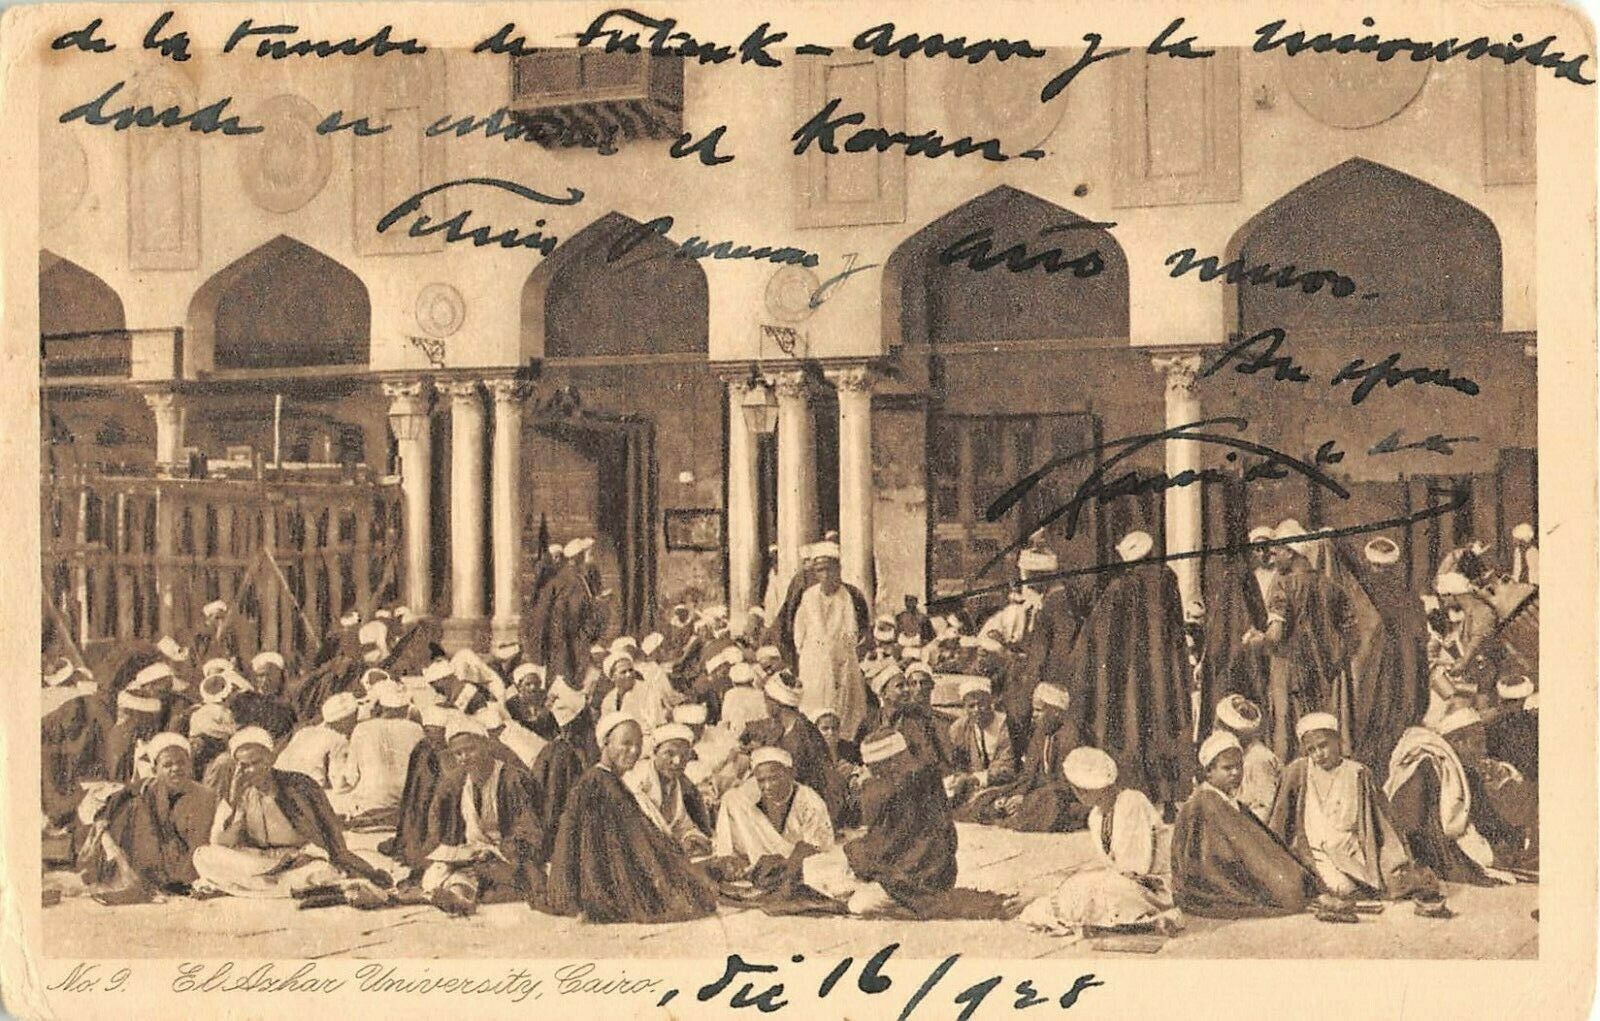 de la tumba de Tutank-amon y la universidad
donde se estudia el Koran-
Felices Pascuas y año nuevo.
Su
No. 9. El Azhar University, Cairo., Dic 16/928